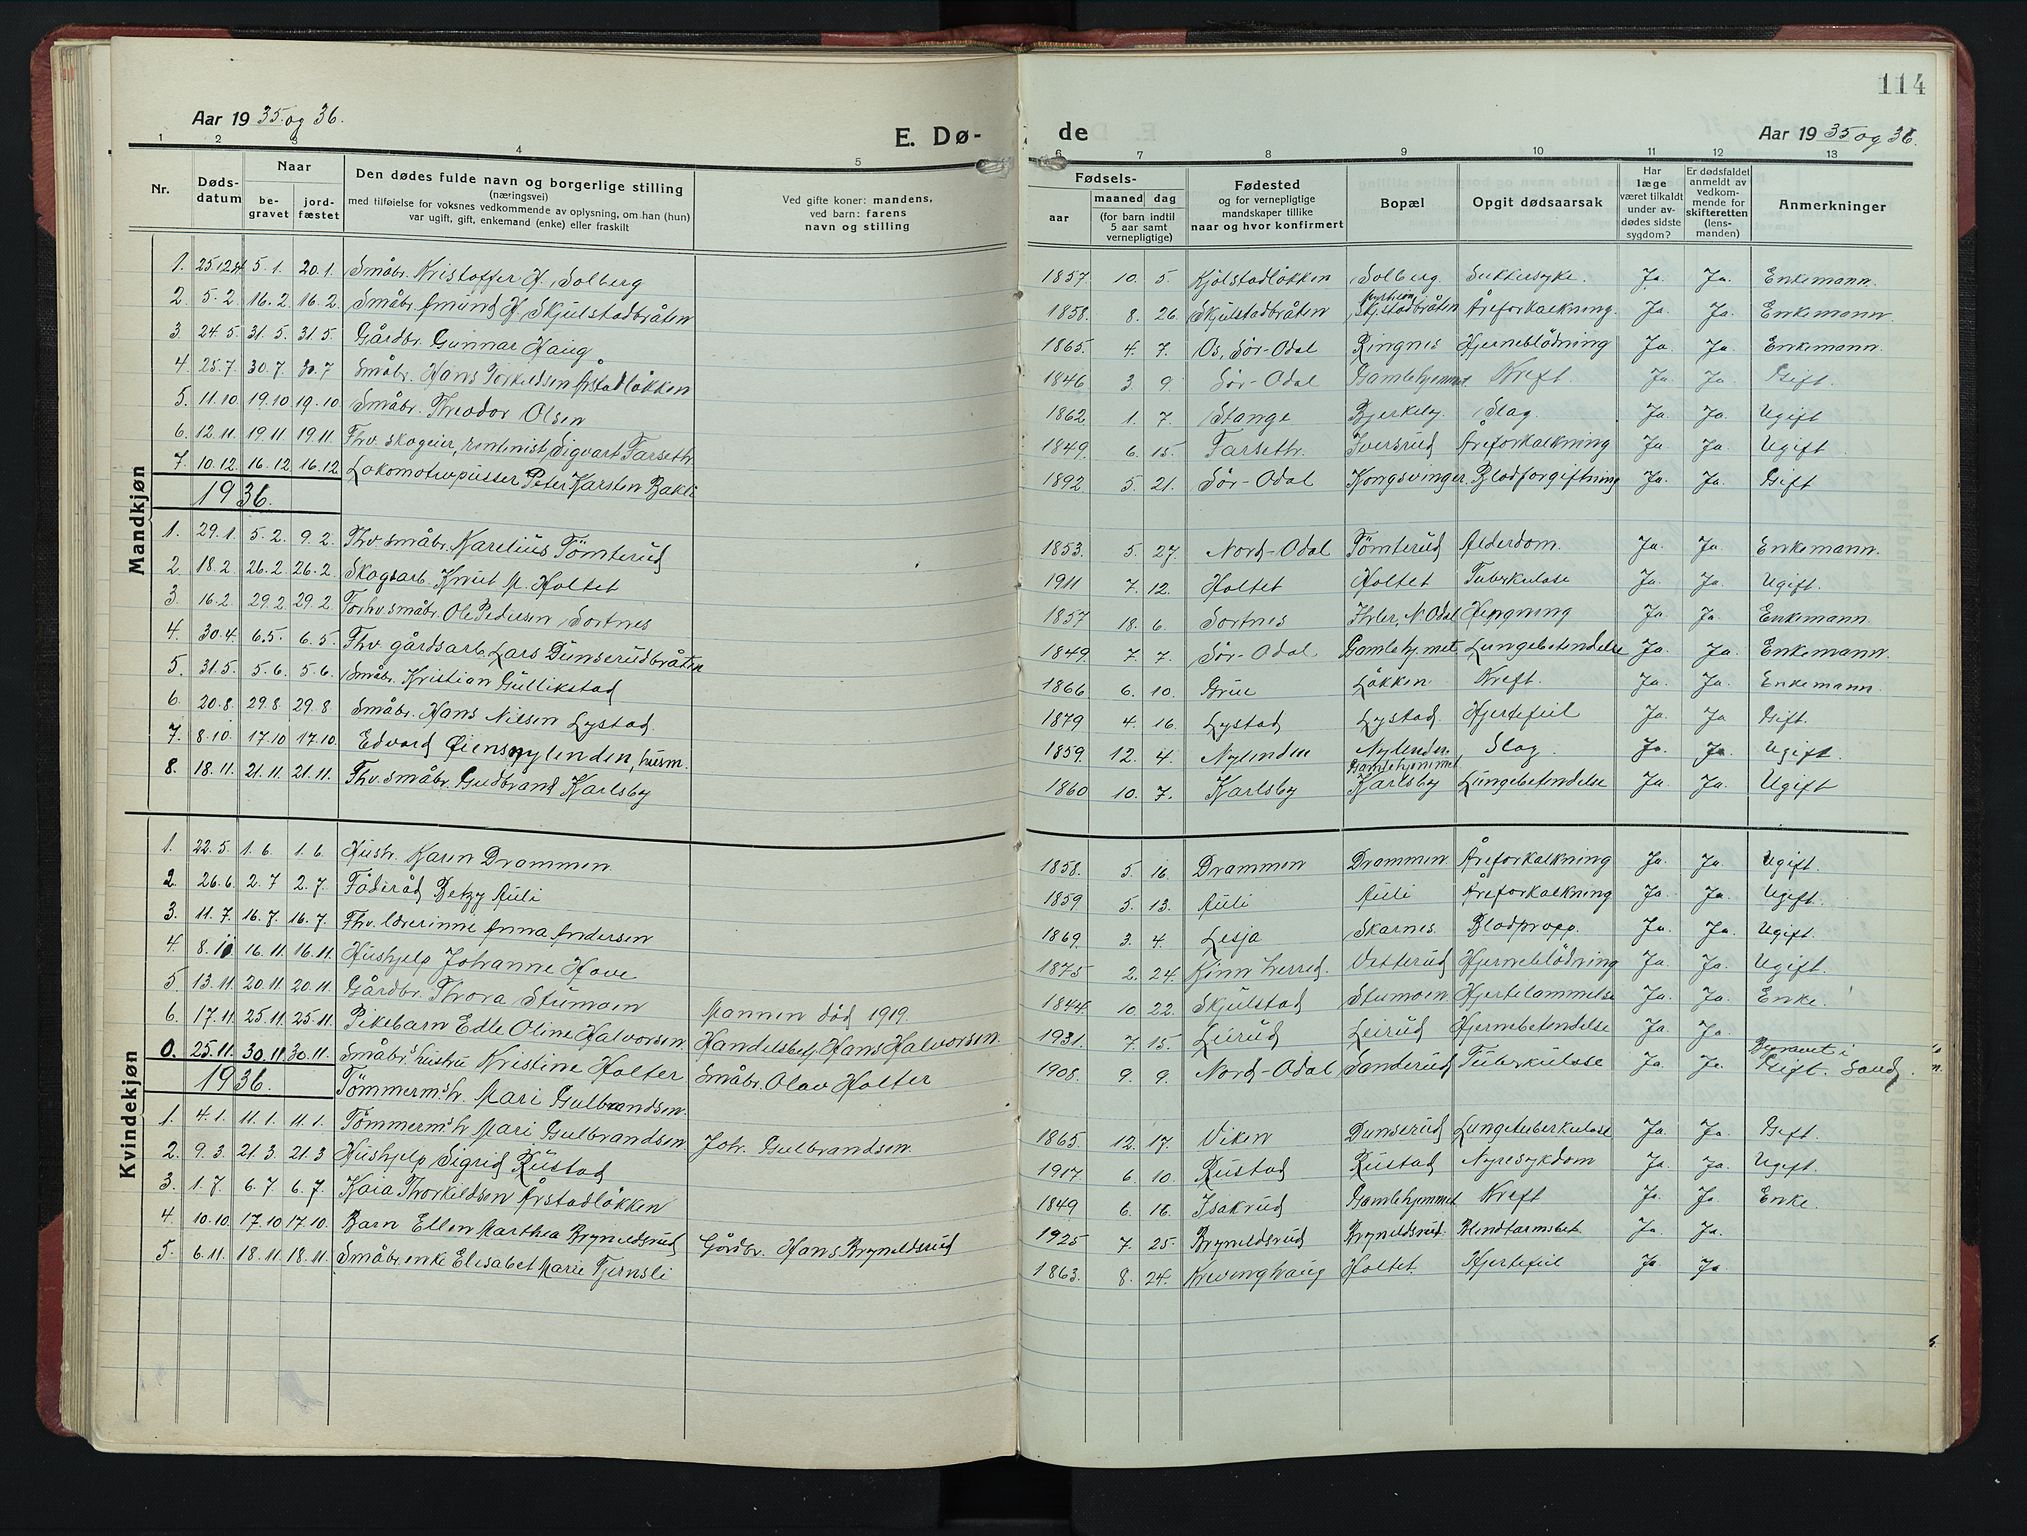 Aar 19 35 og 36.
E. Dø-
de
114
Aar 19 35 og 36.
1 2 3 4 5 6 7 8 9 10 11 12 13
Nr.
Døds-datum
Naar
be-gravet
jord-fæstet
Den dødes fulde navn og borgerlige stilling
(næringsvei)
med tilføielse for voksnes vedkommende av oplysning, om han (hun)
var ugift, gift, enkemand (enke) eller fraskilt
Ved gifte koner: mandens,
ved barn: farens
navn og stilling
Fødsels-
aar
maaned dag
(for barn indtil
5 aar samt
vernepligtige)
Fødested
og for vernepligtige
mandskaper tillike
naar og hvor konfirmert
Bopæl
Opgit dødsaarsak
Har
læge
været tilkaldt
under av-
dødes sidste
sygdom?
Er dødsfaldet
anmeldt av
vedkom-
mende for
skifteretten
(lens-
manden)
Anmerkninger
Mandkjøn
1. 25.12.34 5.1. 20.1. Småbr. Kristoffer H. Solberg 1857. 10. 5. Kjølstadløkken Solberg Sukkersyke. Ja. Ja. Enkemann.
2. 5.2. 16.2. 16.2. Småbr. Amund H. Skjulstadbråten 1858. 8. 26. Skjulstadbråten Skjulstadbråten Åreforkalkning. Ja. Ja. Enkemann.
3. 24.5. 31.5. 31.5. Gårdbr. Gunnar Haug 1865. 4. 7. Os, Sør-Odal Ringnes Hjerneblödning Ja. Ja. Enkemann.
4. 25.7. 30.7. 30.7 Småbr. Hans Torkildsen Årstadløkken 1846. 3. 9. Sør-Odal Gamlehjemmet Kreft. Ja. Ja. Gift.
5. 11.10 19.10 19.10 Småbr. Theodor Olsen 1862. 1. 7. Stange Bjerkeby. Slag. Ja. Ja. Ugift
6. 12.11. 19.11. 19.11. Fhv. skogeier, rentenist, Sigvart Tarseth. 1849. 6. 15. Tarseth. Iversrud Åreforkalkning Ja. Ja. Ugift.
7. 10.12. 16.12 16.12 Lokomotivpusser Peter Karsten Bakli 1892. 5. 21. Sør-Odal Kongsvinger. Blodforgiftning Ja. Ja. Gift
1936.
1. 29.1. 5.2. 9.2. Fhv. småbr. Karelius Tömterud 1853. 5. 27. Nord-Odal Tömterud Alderdom. Ja. Ja. Enkemann.
2. 18.2. 26.2. 26.2. Skogsarb. Knut M. Holtet 1911. 7. 12. Holtet Holtet Tuberkulose Ja. Ja. Ugift.
3. 16.2. 29.2. 29.2. Forhv. småbr. Ole Pedersen Sortnes 1857 18. 6. Sortnes N. Odal Hengning Ja. Ja. Enkemann.
4. 30.4. 6.5. 6.5. Fhv. gårdsarb. Lars Dunserudbråten 1849. 7. 7. Sør-Odal Gamlehj.met. Lungebetendelse Ja. Ja. Enkemann.
5. 31.5. 5.6. 5.6. Småbr. Kristian Gullikstad 1866. 6. 10. Grue Løkken Kreft. Ja. Ja. Enkemann.
6. 20.8. 29.8. 29.8. Småbr. Hans Nilsen Lystad. 1879. 4. 16. Lystad Lystad. Hjertefeil Ja. Ja Gift.
7. 8.10. 17.10 17.10. Edvard Øiensnylenden, husm. 1859. 12. 4. Nylenden Nylenden. Slag. Ja. Ja. Ugift.
8. 18.11. 21.11. 21.11. Fhv. småbr. Gudbrand Karlsby 1860 10. 7. Karlsby Gamlehjemmet Karlsby Lungebetendelse Ja. Ja. Ugift
Kvindekjøn
1. 22.5. 1.6. 1.6. Hustr. Karen Drammen 1858. 5. 16. Drammen Drammen. Åreforkalkning Ja. Ja. Ugift
2. 26.6. 2.7 2.7. Föderåd Betzy Auli 1859 5. 13. Auli Auli Åreforkalkning Ja. Ja. Ugift.
3. 11.7. 16.7. 16.7. Fhv. lærerinne Anna Andersen 1869. 3. 4. Lesja Skarnes. Blodpropp. Ja. Ja. Ugift.
4. 8.10 16.11. 16.11. Hushjelp Johanne Hove 1875 2. 24. Kinn herred. Vetterud Hjerneblödning Ja. Ja. Ugift.
5. 13.11. 20.11 20.11. Gårdbr. Thora Stumoen Mannen död 1919. 1844. 10. 22. Skjulstad Stumoen Hjertelammelse Ja. Ja. Enke.
6. 17.11. 25.11. 25.11. Pikebarn Edle Oline Halvorsen. Handelsbetj. Hans Halvorsen. 1931. 7. 15. Leirud Leirud Hjernebetendelse Ja. Ja.
0. 25.11. 30.11. 30.11. Småbr.s hustru Kristine Holter Småbr. Olav Holter 1908. 9. 9. Nord-Odal Sanderud Tuberkulose Ja. Ja. Begravet i Gift. Sand.
1936. Tömmerm.s h. Mari Gulbrandsen.
1. 4.1. 11.1. 11.1. Tömmerm.s h. Mari Gulbrandsen. Joh. Gulbrandsen. 1865. 12. 17. Viken Dunserud Lungetuberkulose Ja. Ja. Gift.
2. 9.3. 21.3. 21.3 Hushjelp Sigrid Rustad 1917. 6. 10. Rustad Rustad Nyresykdom Ja. Ja. Ugift
3. 1.7. 6.7. 6.7. Kaia Thorkildsen Årstadløkken 1849 6. 16. Isakrud Gamlehjemmet Kreft Ja. Ja. Enke.
4. 10.10. 17.10 17.10. Barn Ellen Marthea Bryneldsrud Gårdbr. Hans Bryneldsrud 1925 7. 25. Bryneldsrud Bryneldsrud. Blindtarmsbet. Ja. Ja.
5. 6.11. 18.11 18.11. Småbr.enke Elisabet Marie Fjernsli 1863. 8. 24. Kvevinghaug Holtet. Hjertefeil Ja. Ja.